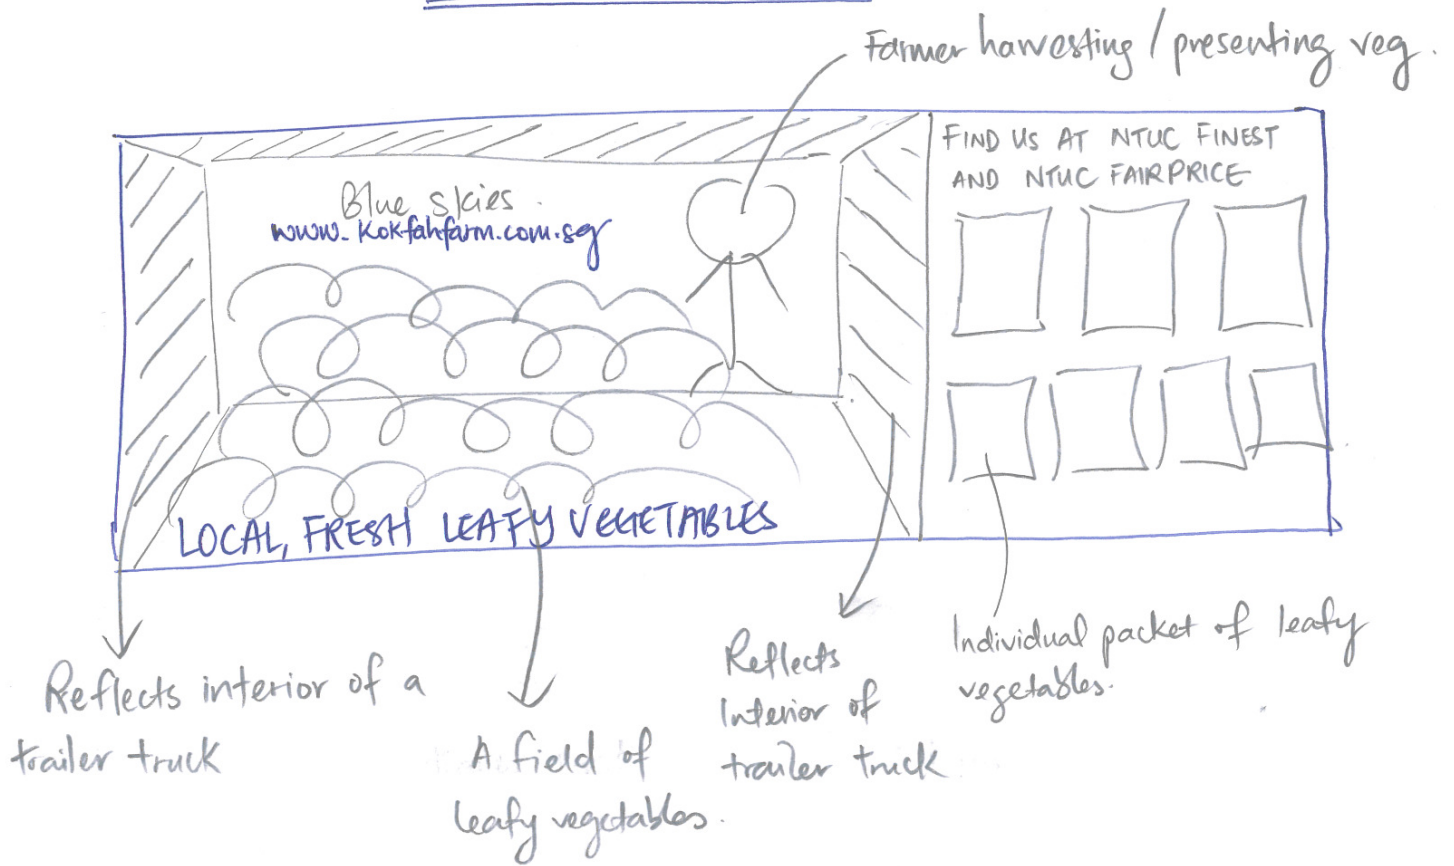 Farmer harvesting / presenting veg.
FIND US AT NTUC FINEST
AND NTUC FAIRPRICE
Blue skies.
www.kokfahfarm.com.sg
LOCAL, FRESH LEAFY VEGETABLES
Reflects interior of a
trailer truck
A field of
leafy vegetables.
Reflects
Interior of
trailer truck
Individual packet of leafy
vegetables.